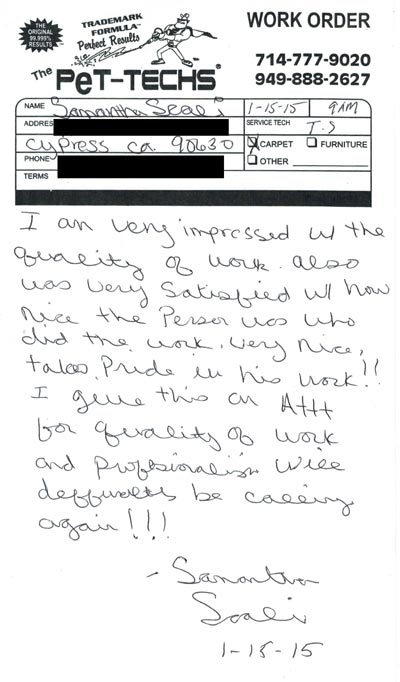 THE ORIGINAL 99.999% RESULTS
TRADEMARK FORMULA™
Perfect Results
The PeT-TECHS®
WORK ORDER
714-777-9020
949-888-2627
NAME Samantha Scali 1-15-15 9AM
ADDRES SERVICE TECH T.S
Cypress Ca 90630 CARPET FURNITURE
PHONE OTHER
TERMS
I am very impressed w/ the
quality of work. also
was very Satisfied w/ how
nice the Person was who
did the work. Very nice,
takes Pride in his work!!
I give this an A+++
for quality of work
and proffesionalism will
deffinately be calling
again!!!
- Samantha
Scali
1-15-15